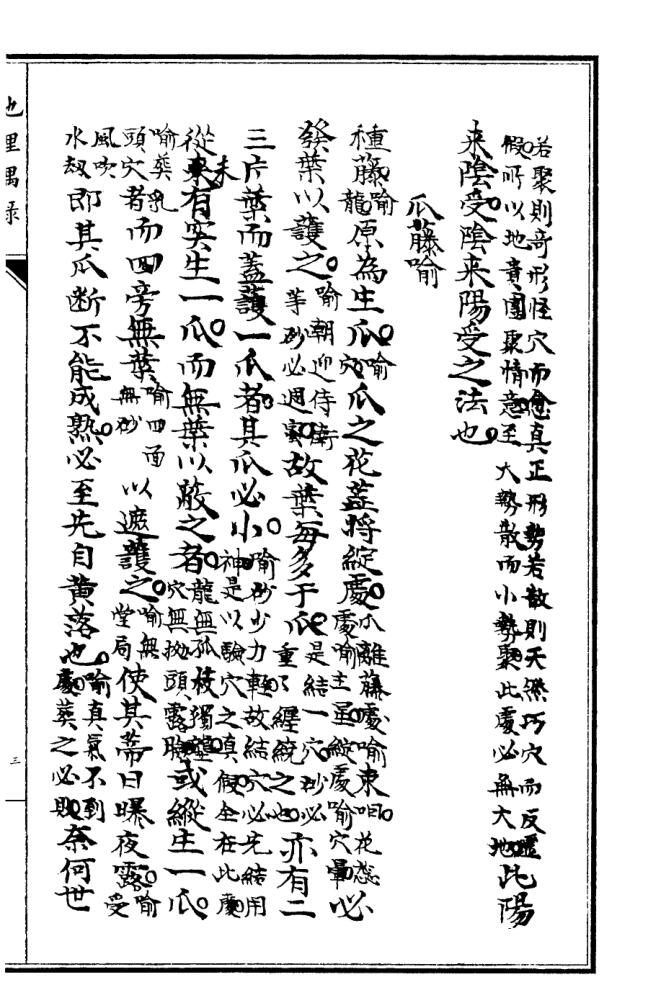 若聚則奇形怪穴而愈真正形勢若散則天然巧穴而反虛
假所以地貴團聚情意至大勢散而小勢聚此處必無大地此陽
来陰受陰来陽受之法也
瓜藤喻
種藤喻龍原為生瓜喻穴瓜之花蓋將綻處小離藤處喻束咽花蕊處喻主星綻處喻穴暈必
發葉以護之喻朝迎侍衛等砂必週密故葉每多于瓜是結一穴砂必重重纏繞之也亦有二
三片葉而蓋護一瓜者其瓜必小喻砂少力輕故結穴必先結用神是以驗穴之真假全在此處
從未有实生一瓜而無葉以蔽之者龍無孤枝獨壟穴無拋頭露臉或縱生一瓜
喻葬乳頭穴者而四旁無葉喻四面無砂以遮護之喻無堂局使其蒂日曝夜露喻受
風吹水刼即其瓜断不能成熟必至先自黄落也喻真氣不到處葬之必敗奈何世
也里遇录
三